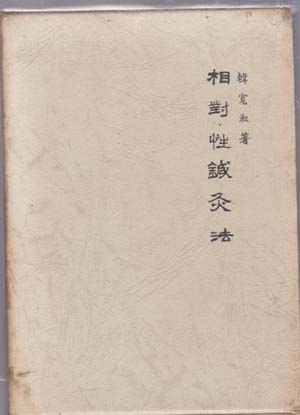 韓寬淑著
相對·性鍼灸法